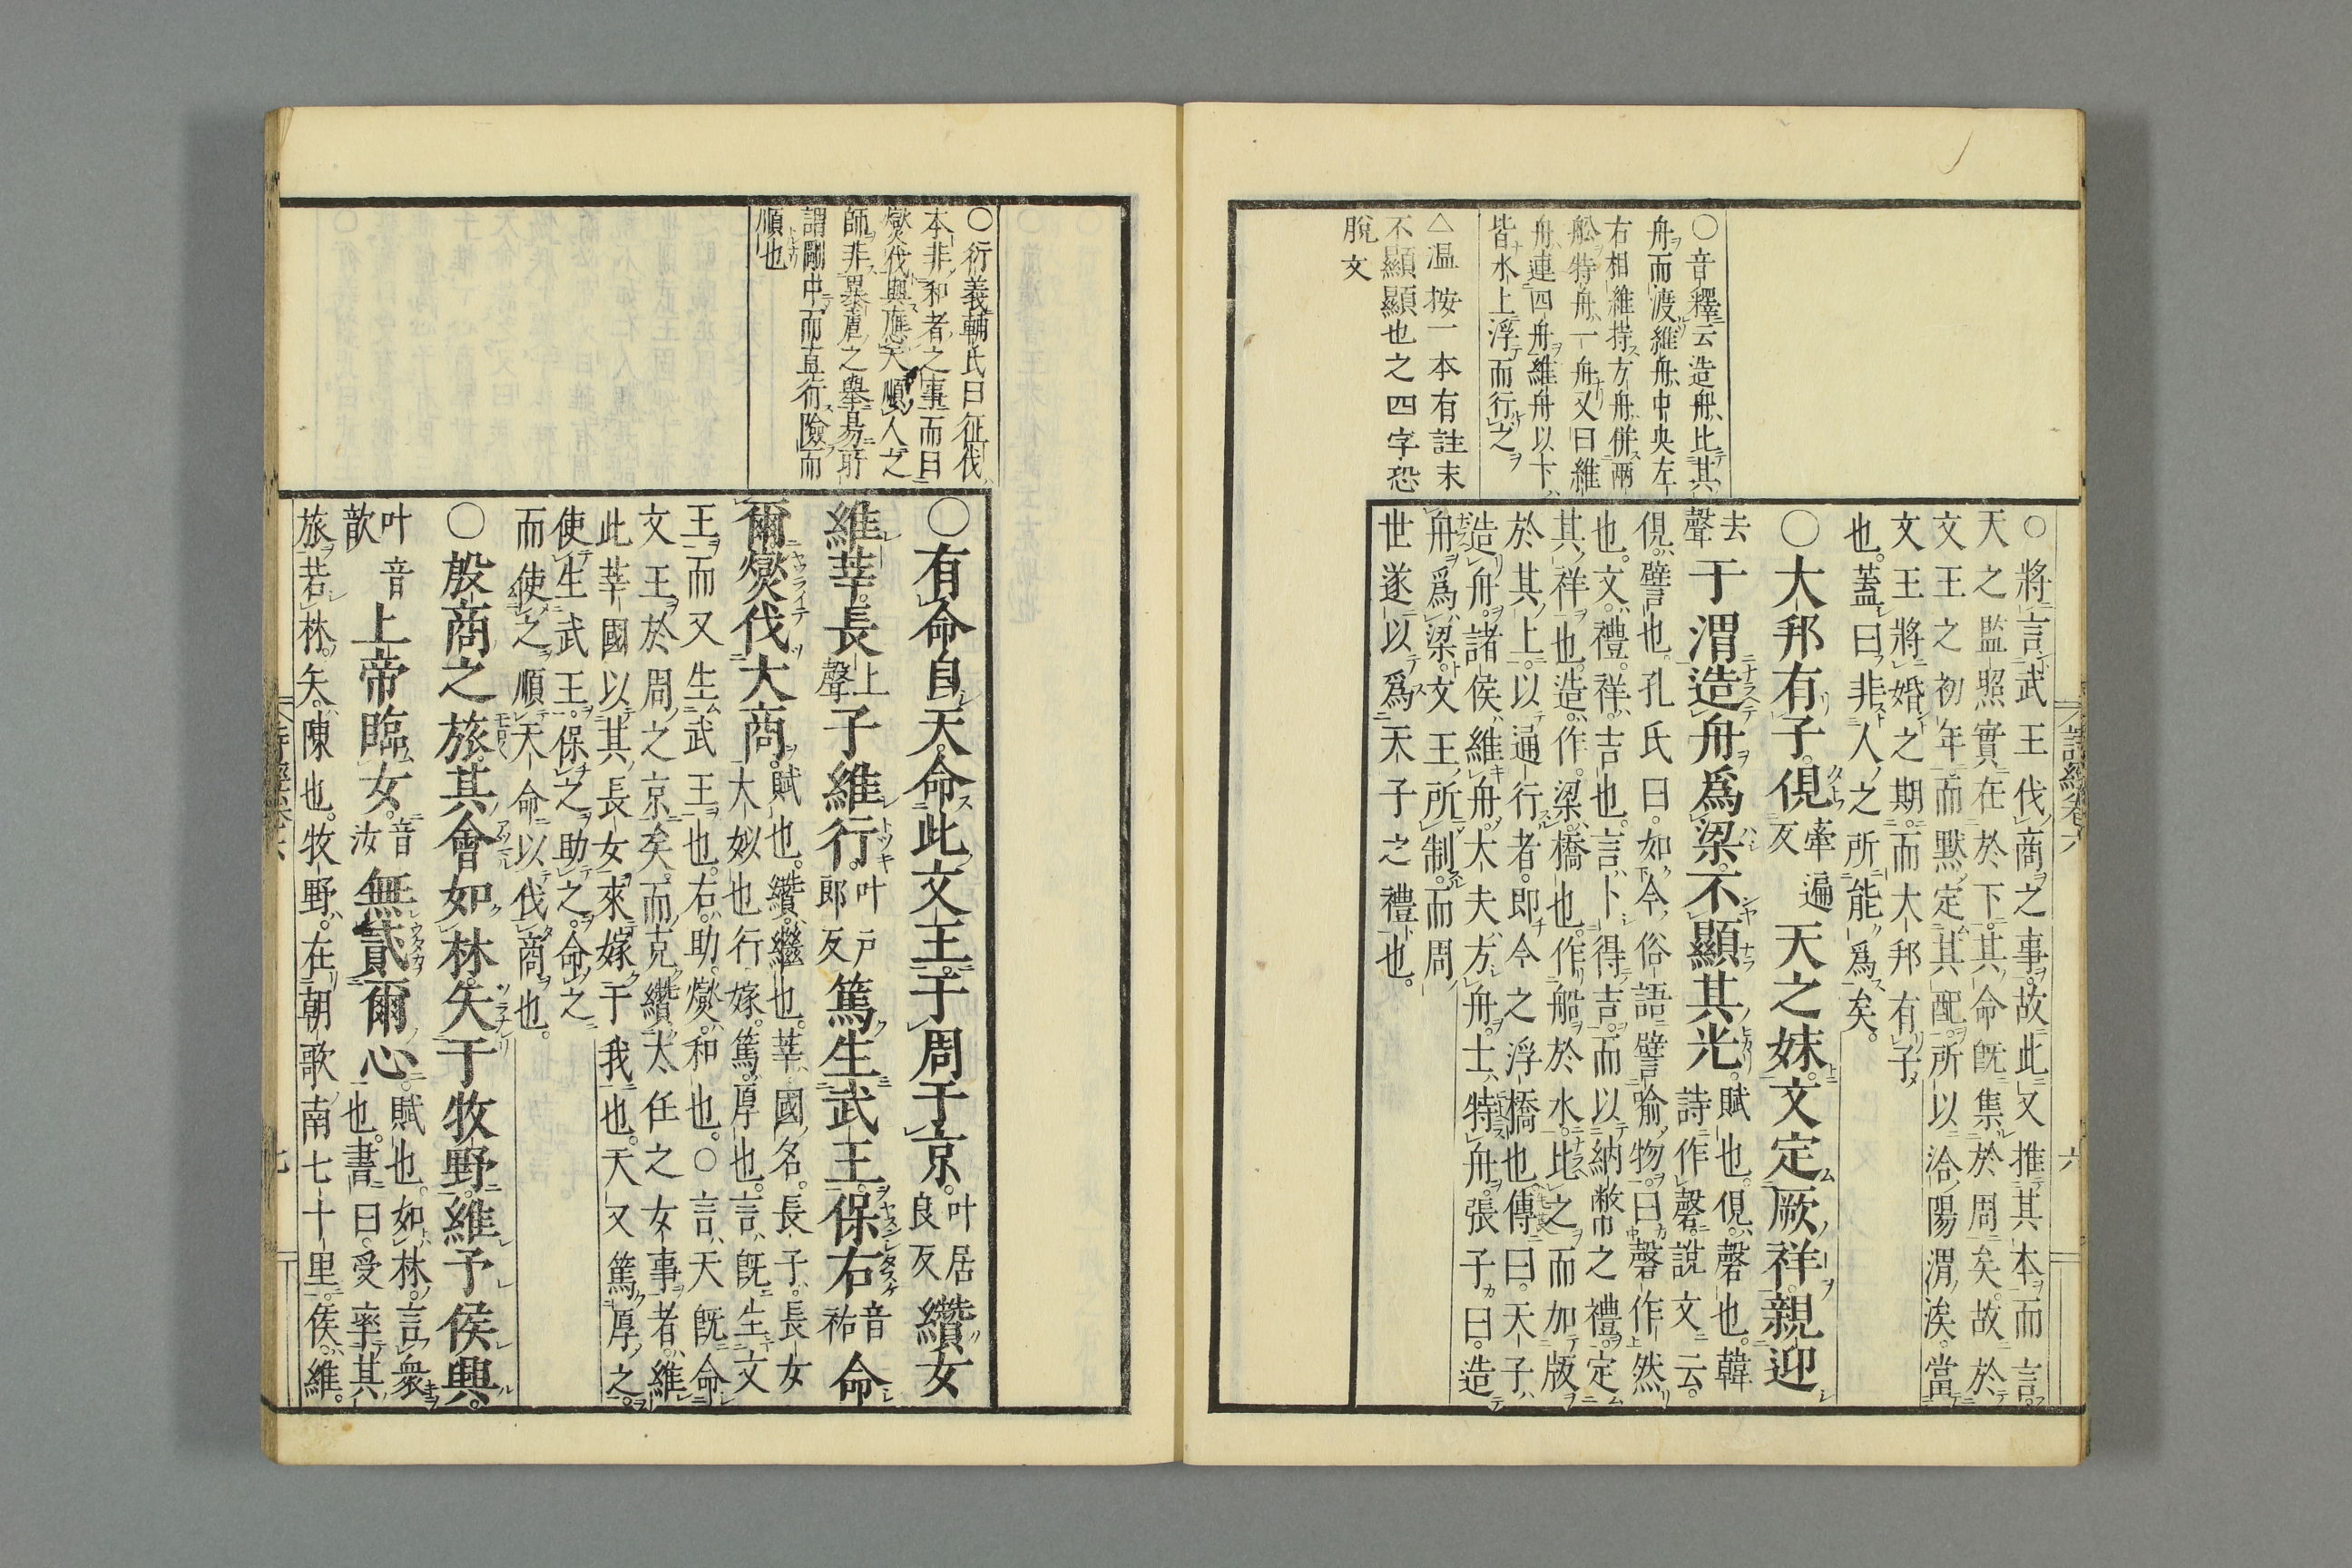 ○音釋云造舟比其
舟而渡維舟中央左
右相維持方舟併兩
舩特舟一舟又曰維
舟連四舟維舟以下
皆水上浮而行之
△温按一本有註末
不顯顯也之四字恐
脫文
詩經卷六
六
○將言武王伐商之事故此又推其本而言
天之監照實在於下其命既集於周矣故於
文王之初年而默定其配所以洽陽渭涘當
文王將婚之期而大邦有子
也蓋曰非人之所能爲矣
○大邦有子俔牽遍反天之妹文定厥祥親迎
去聲于渭造舟爲梁不顯其光賦也俔磬也韓詩作磬說文云
俔譬也孔氏曰如今俗語譬喻物曰磬作然
也文禮祥吉也言卜得吉而以納幣之禮定
其祥也造作梁橋也作船於水比之而加版
於其上以通行者即今之浮橋也傳曰天子
造舟諸侯維舟大夫方舟士特舟張子曰造
舟爲梁文王所制而周
世遂以爲天子之禮也
○衍義輔氏曰征伐
本非和者之事而曰
燮伐與應天順人之
師非暴厲之舉易所
謂剛中而直行險而
順也
○有命自天命此文王于周于京叶居良反纘女
維莘長上聲子維行叶戶郎反篤生武王保右音祐命
爾燮伐大商賦也纘繼也莘國名長子長女大姒也行嫁篤厚也言既生文
王而又生武王也右助燮和也○言天既命
文王於周之京矣而克纘大任之女事者維
此莘國以其長女來嫁于我也天又篤厚之
使生武王保之助之命之
而使之順天命以伐商也
○殷商之旅其會如林矢于牧野維予侯興
叶音歆上帝臨女音汝無貳爾心賦也如林言衆也書曰受率其
旅若林矢陳也牧野在朝歌南七十里侯維
七